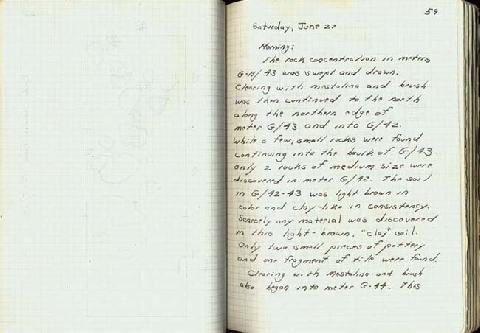 59
Saturday, June 20
Morning:
The rock concentration in meters
G-H/43 was swept and drawn.
Clearing with mastolina and brush
was then continued to the north
along the northern edge of
meter G/43 and into G/42.
While a few, small rocks were found
continuing into the baulk of G/43
only 2 rocks of medium size were
discovered in meter G/42. The soil
in G/42-43 was light brown in
color and clay-like in consistency.
Scarcely any material was discovered
in this light-brown, "clay" soil.
Only two small pieces of pottery
and one fragment of tile were found.
Clearing with mastolina and brush
also began into meter G-44. This